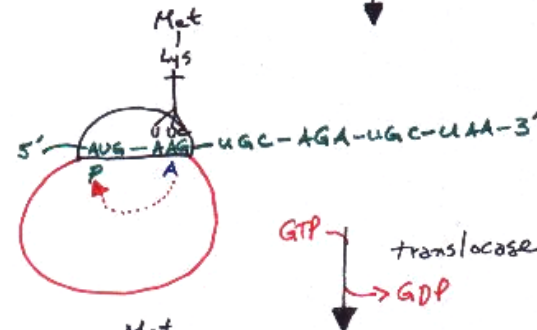 Met
Lys
U U C
5´ AUG - AAG - UGC - AGA - UGC - UAA - 3´
P A
GTP
translocase
GDP
Met